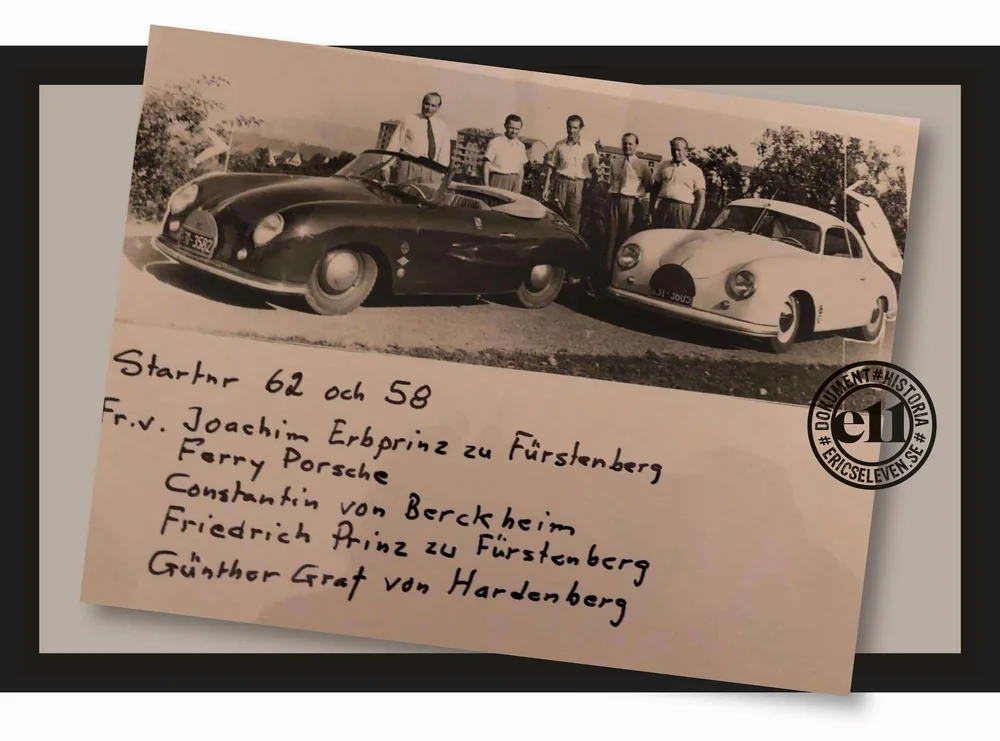 3582
Startnr 62 och 58
Fr.v. Joachim Erbprinz zu Fürstenberg
Ferry Porsche
Constantin von Berckheim
Friedrich Prinz zu Fürstenberg
Günther Graf von Hardenberg
# DOKUMENT#HISTORIA #
ell
ERICSELEVEN.SE